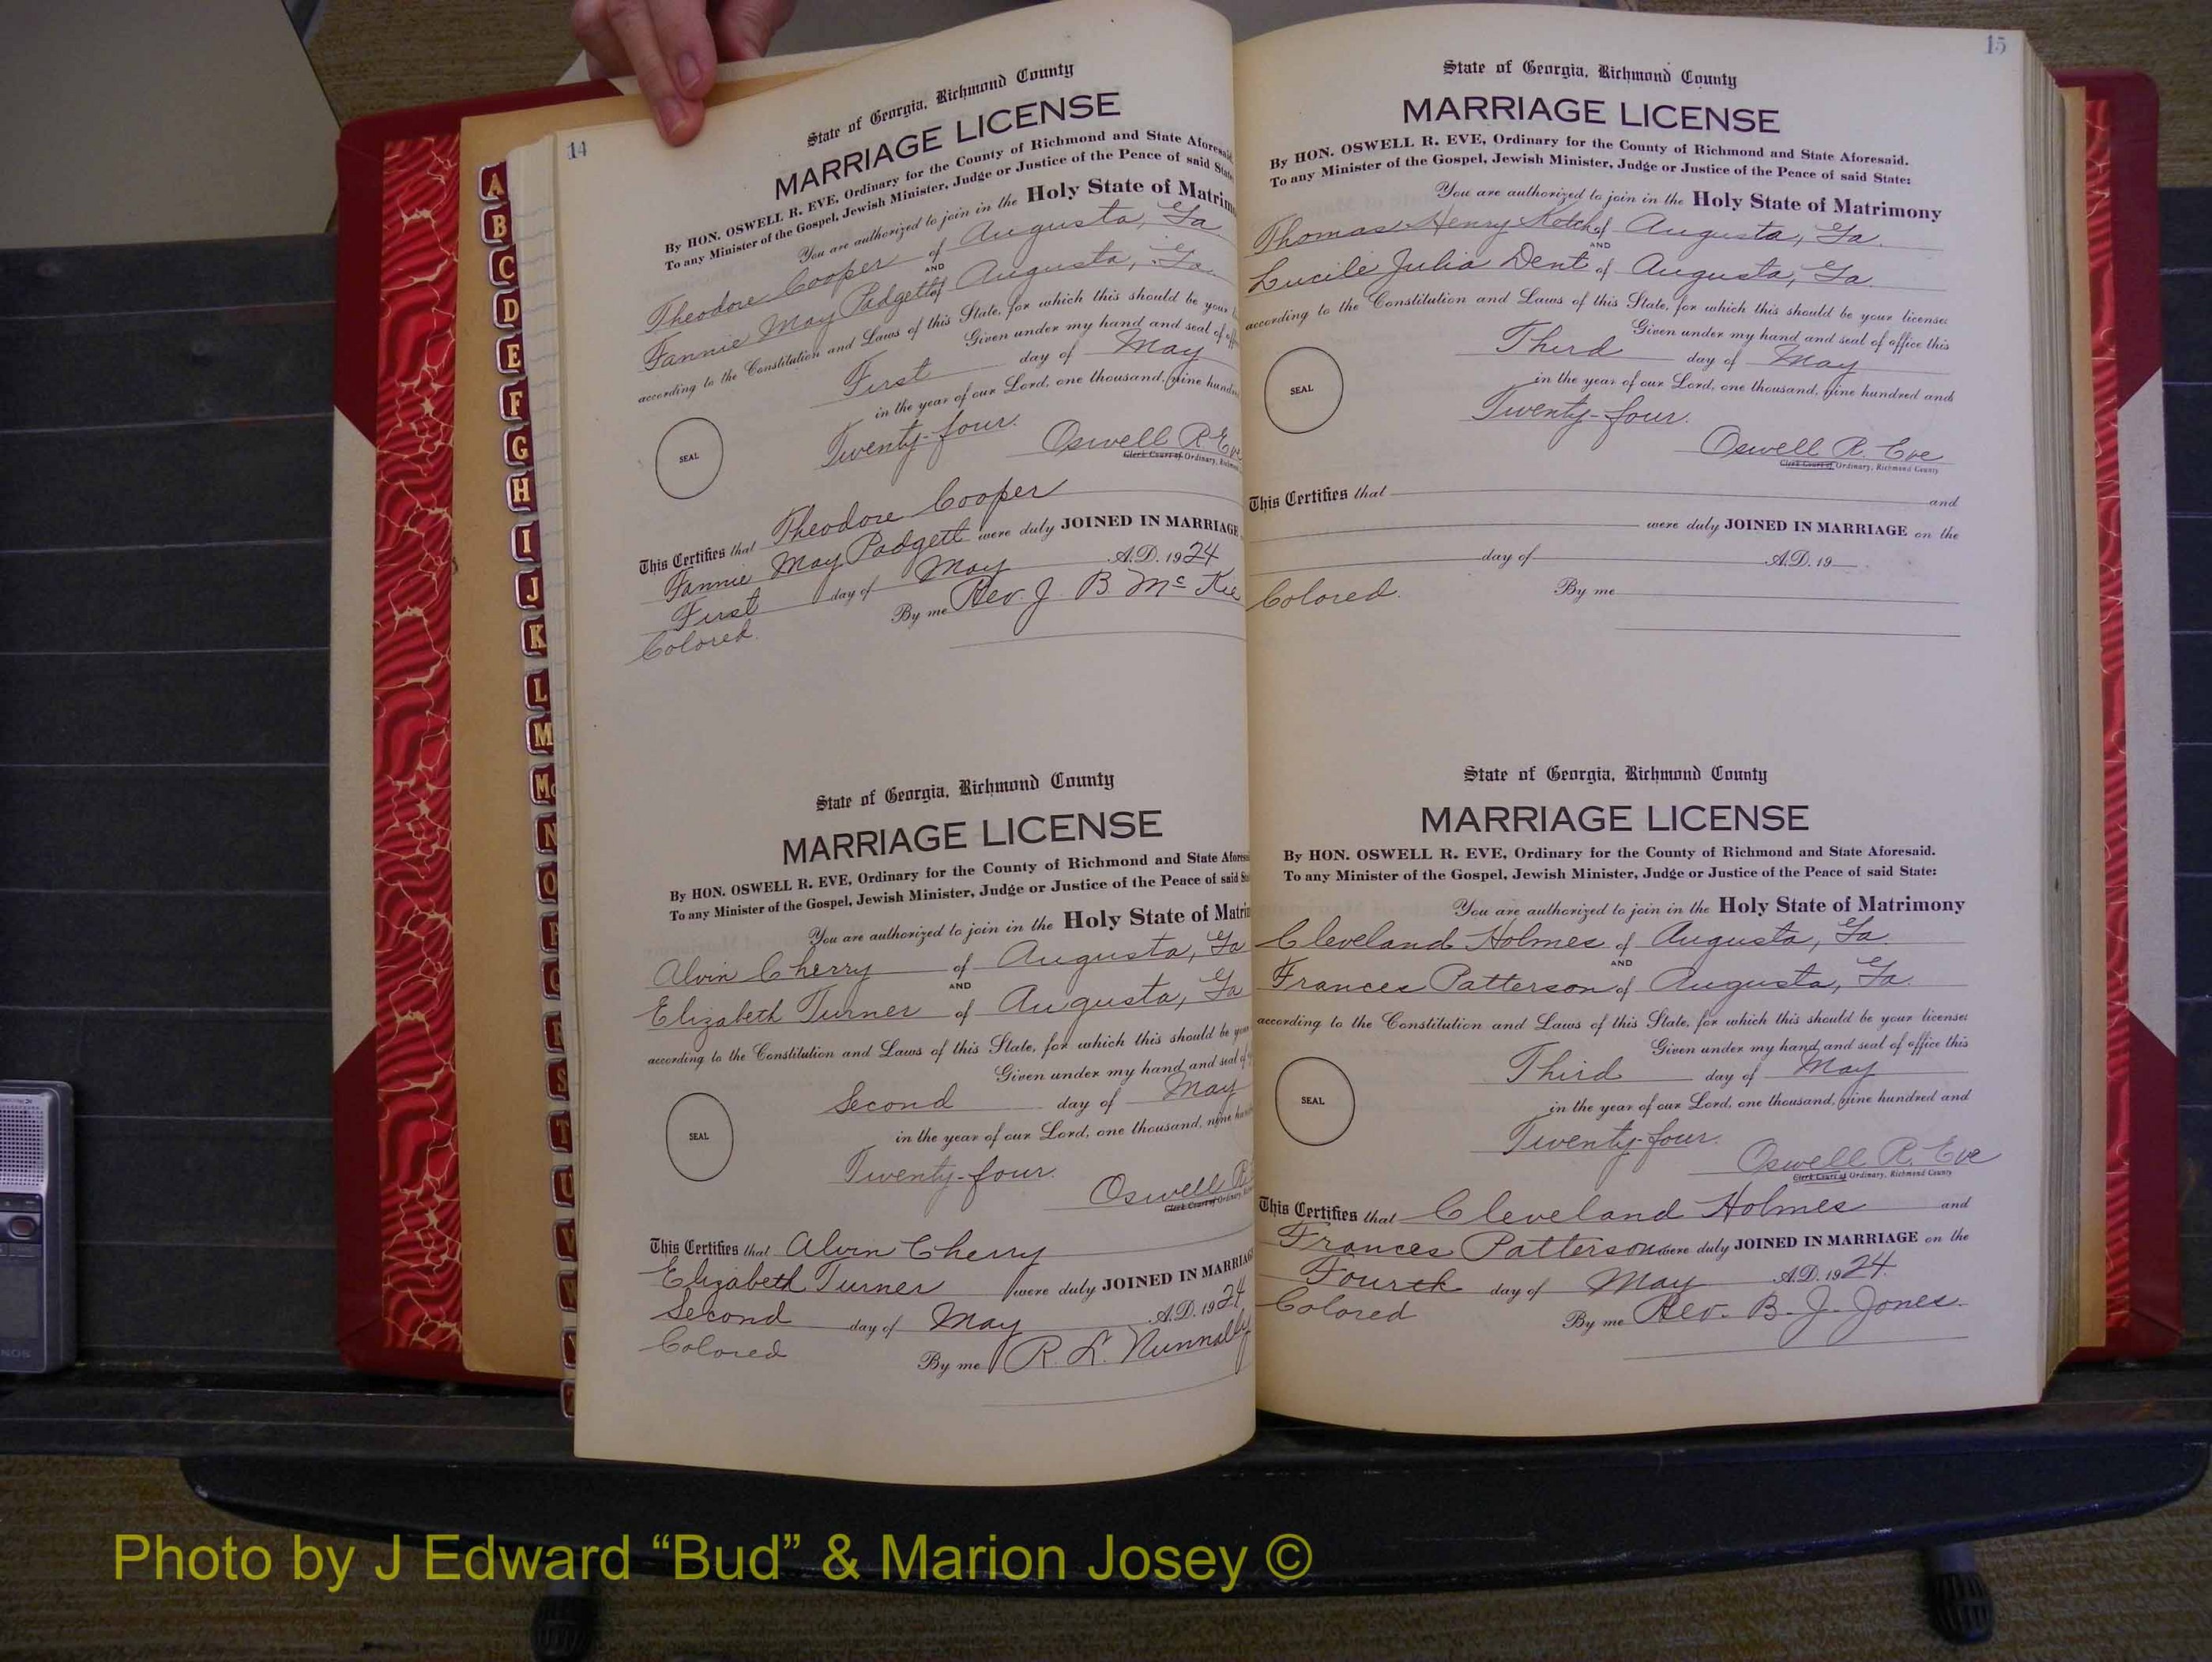 14
State of Georgia, Richmond County
MARRIAGE LICENSE
By HON. OSWELL R. EVE, Ordinary for the County of Richmond and State Aforesaid.
To any Minister of the Gospel, Jewish Minister, Judge or Justice of the Peace of said State
You are authorized to join in the Holy State of Matrim
Theodore Cooper of Augusta, Ga.
AND
Fannie May Padgett of Augusta, Ga.
according to the Constitution and Laws of this State, for which this should be your
Given under my hand and seal of off
First day of May
in the year of our Lord, one thousand, nine hund
Twenty-four.
SEAL
Oswell R. Eve
Clerk Court of Ordinary,
This Certifies that Theodore Cooper
Fannie May Padgett were duly JOINED IN MARRIAGE
First day of May A.D. 1924
Colored. By me Rev. J. B. McKie
State of Georgia, Richmond County
MARRIAGE LICENSE
By HON. OSWELL R. EVE, Ordinary for the County of Richmond and State Afores
To any Minister of the Gospel, Jewish Minister, Judge or Justice of the Peace of said
You are authorized to join in the Holy State of Matrim
Alvin Cherry of Augusta, Ga
AND
Elizabeth Turner of Augusta, Ga
according to the Constitution and Laws of this State, for which this should be
Given under my hand and seal of
Second day of May
in the year of our Lord, one thousand, nine
SEAL
Twenty-four.
Oswell R.
Clerk Court of Ordinary,
This Certifies that Alvin Cherry
Elizabeth Turner were duly JOINED IN MARRIAG
Second day of May A.D. 1924
Colored By me R. L. Nunnally
15
State of Georgia, Richmond County
MARRIAGE LICENSE
By HON. OSWELL R. EVE, Ordinary for the County of Richmond and State Aforesaid.
To any Minister of the Gospel, Jewish Minister, Judge or Justice of the Peace of said State:
You are authorized to join in the Holy State of Matrimony
Thomas Henry Kotch of Augusta, Ga.
AND
Lucile Julia Dent of Augusta, Ga.
according to the Constitution and Laws of this State, for which this should be your license:
Given under my hand and seal of office this
Third day of May
in the year of our Lord, one thousand, nine hundred and
SEAL
Twenty-four.
Oswell R. Eve
Clerk Court of Ordinary, Richmond County
This Certifies that and
were duly JOINED IN MARRIAGE on the
day of A.D. 19
Colored. By me
State of Georgia, Richmond County
MARRIAGE LICENSE
By HON. OSWELL R. EVE, Ordinary for the County of Richmond and State Aforesaid.
To any Minister of the Gospel, Jewish Minister, Judge or Justice of the Peace of said State:
You are authorized to join in the Holy State of Matrimony
Cleveland Holmes of Augusta, Ga.
AND
Frances Patterson of Augusta, Ga.
according to the Constitution and Laws of this State, for which this should be your license:
Given under my hand and seal of office this
Third day of May
in the year of our Lord, one thousand, nine hundred and
SEAL
Twenty-four.
Oswell R. Eve
Clerk Court of Ordinary, Richmond County
This Certifies that Cleveland Holmes and
Frances Patterson were duly JOINED IN MARRIAGE on the
Fourth day of May A.D. 1924.
Colored By me Rev. B. J. Jones.
A
B
C
D
E
F
G
H
I
J
K
L
M
Mc
N
O
P
Q
R
S
T
U
V
W
Photo by J Edward “Bud” & Marion Josey ©